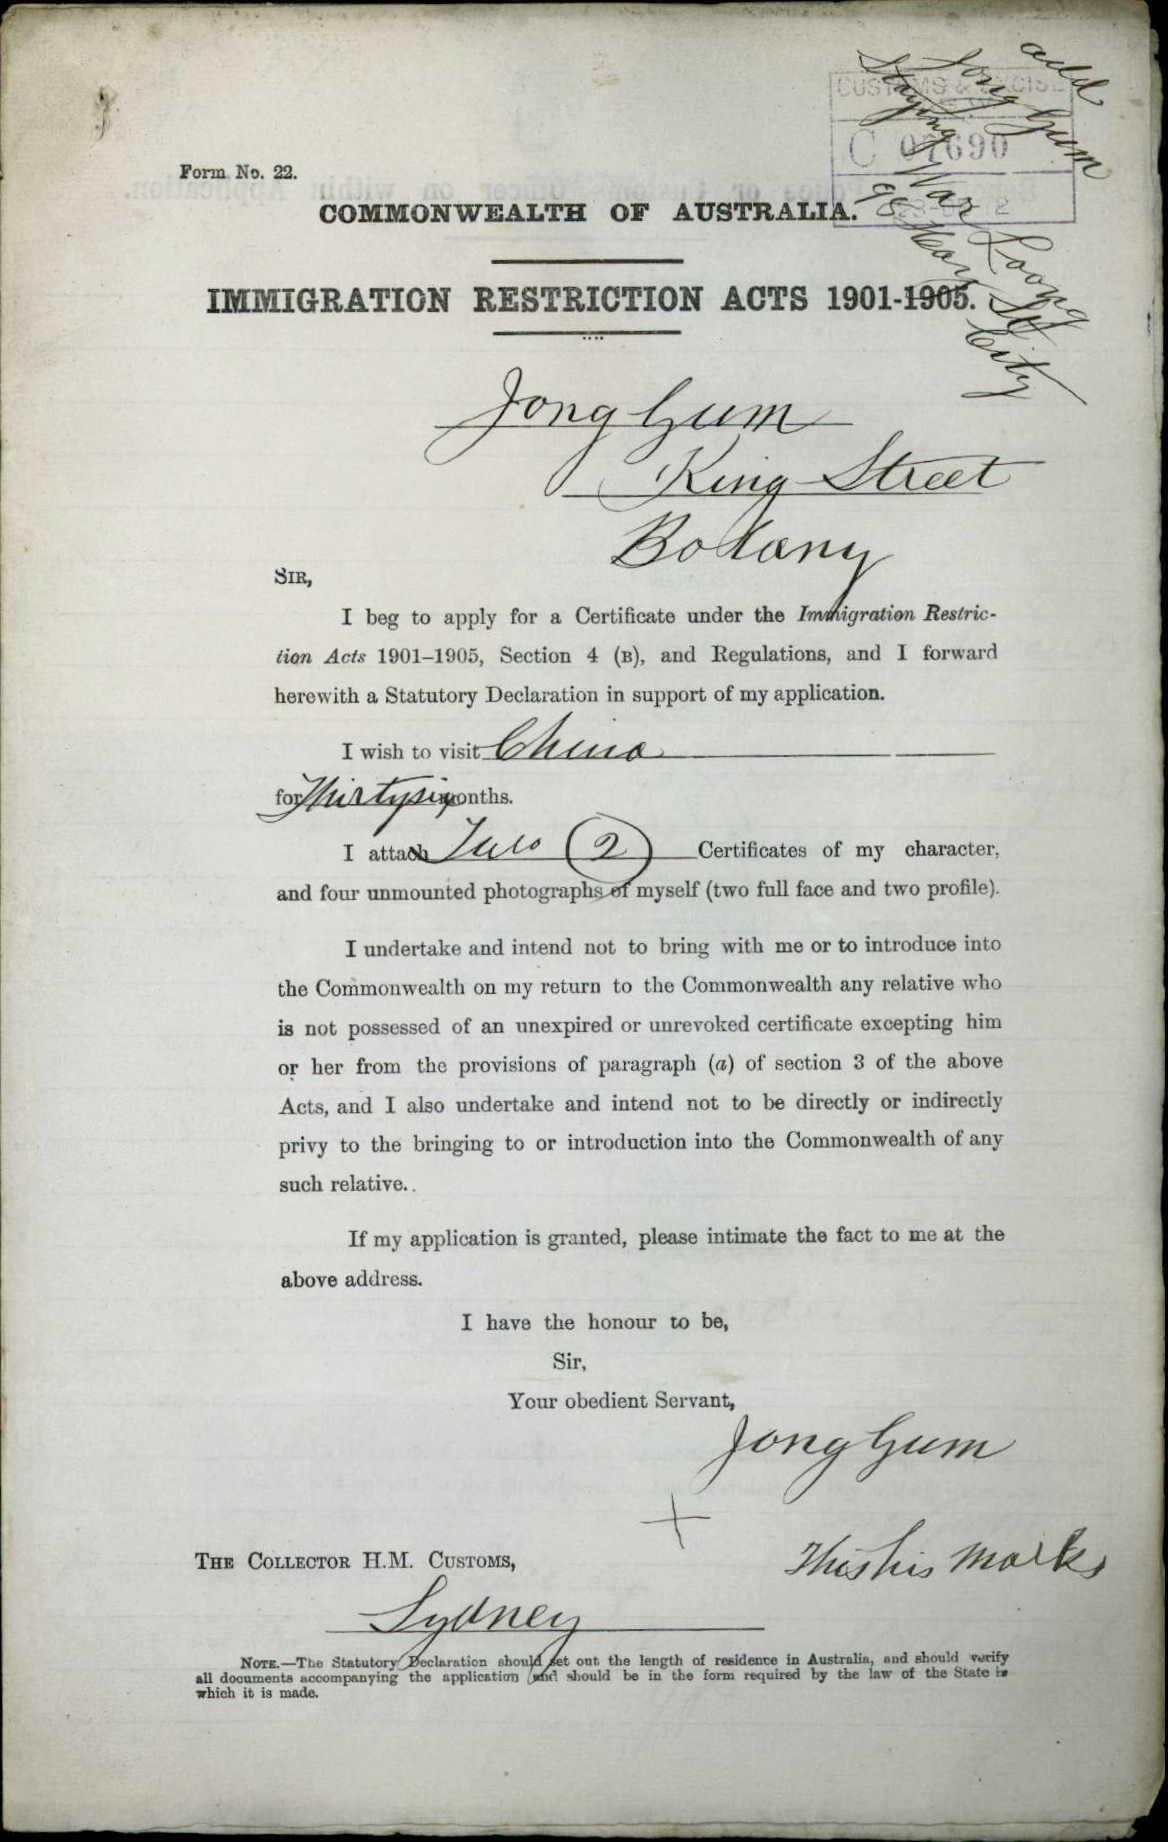 add
Jong Gum
Staying War Loong
98 Hay St
City
CUSTOMS & EXCISE
C 07690
Form No. 22.
COMMONWEALTH OF AUSTRALIA.
IMMIGRATION RESTRICTION ACTS 1901-1905.
Jong Gum
King Street
Botany
SIR,
I beg to apply for a Certificate under the Immigration Restric-
tion Acts 1901–1905, Section 4 (B), and Regulations, and I forward
herewith a Statutory Declaration in support of my application.
I wish to visit China
for Thirtysix months.
I attach Two (2) Certificates of my character,
and four unmounted photographs of myself (two full face and two profile).
I undertake and intend not to bring with me or to introduce into
the Commonwealth on my return to the Commonwealth any relative who
is not possessed of an unexpired or unrevoked certificate excepting him
or her from the provisions of paragraph (a) of section 3 of the above
Acts, and I also undertake and intend not to be directly or indirectly
privy to the bringing to or introduction into the Commonwealth of any
such relative.
If my application is granted, please intimate the fact to me at the
above address.
I have the honour to be,
Sir,
Your obedient Servant,
Jong Gum
THE COLLECTOR H.M. CUSTOMS,
This his Marks
Sydney
NOTE.—The Statutory Declaration should set out the length of residence in Australia, and should verify
all documents accompanying the application and should be in the form required by the law of the State in
which it is made.